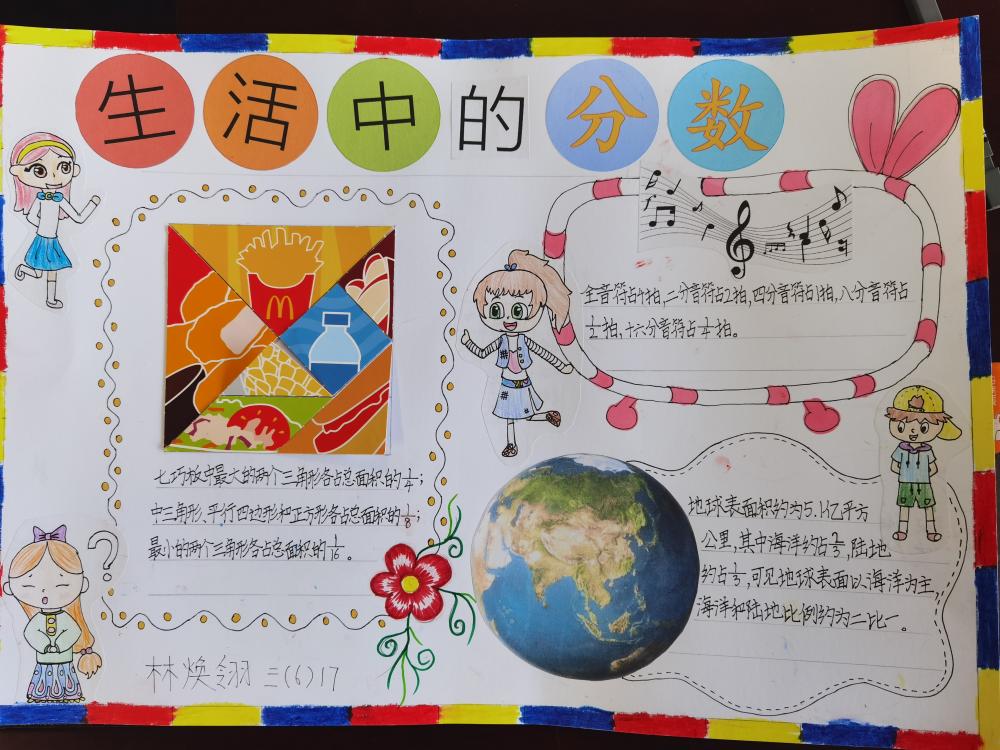 生活中的分数
七巧板中最大的两个三角形各占总面积的1/4;
中三角形、平行四边形和正方形各占总面积的1/8;
最小的两个三角形各占总面积的1/16。
全音符占4拍,二分音符占2拍,四分音符占1拍,八分音符占
1/2拍,十六分音符占1/4拍。
地球表面积约为5.1亿平方
公里,其中海洋约占2/3,陆地
约占1/3,可见地球表面以海洋为主,
海洋和陆地比例约为二比一。
林焕翎 三(6)17
?